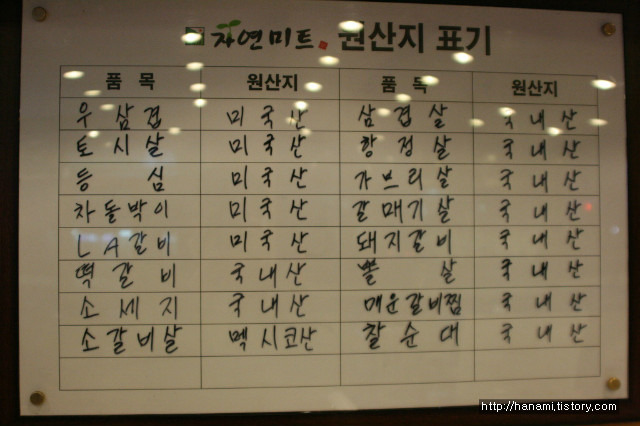 자연미트 원산지 표기
품 목 원산지 품 독 원산지
우 삼 겹 미 국 산 삼 겹 살 국 내 산
토 시 살 미 국 산 항 정 살 국 내 산
등 심 미 국 산 가 브 리 살 국 내 산
차 돌 박 이 미 국 산 갈 매 기 살 국 내 산
L A 갈 비 미 국 산 돼 지 갈 비 국 내 산
떡 갈 비 국 내 산 뽈 살 국 내 산
소 세 지 국 내 산 매운갈비찜 국 내 산
소 갈 비 살 멕 시 코 산 찰 순 대 국 내 산
http://hanami.tistory.com